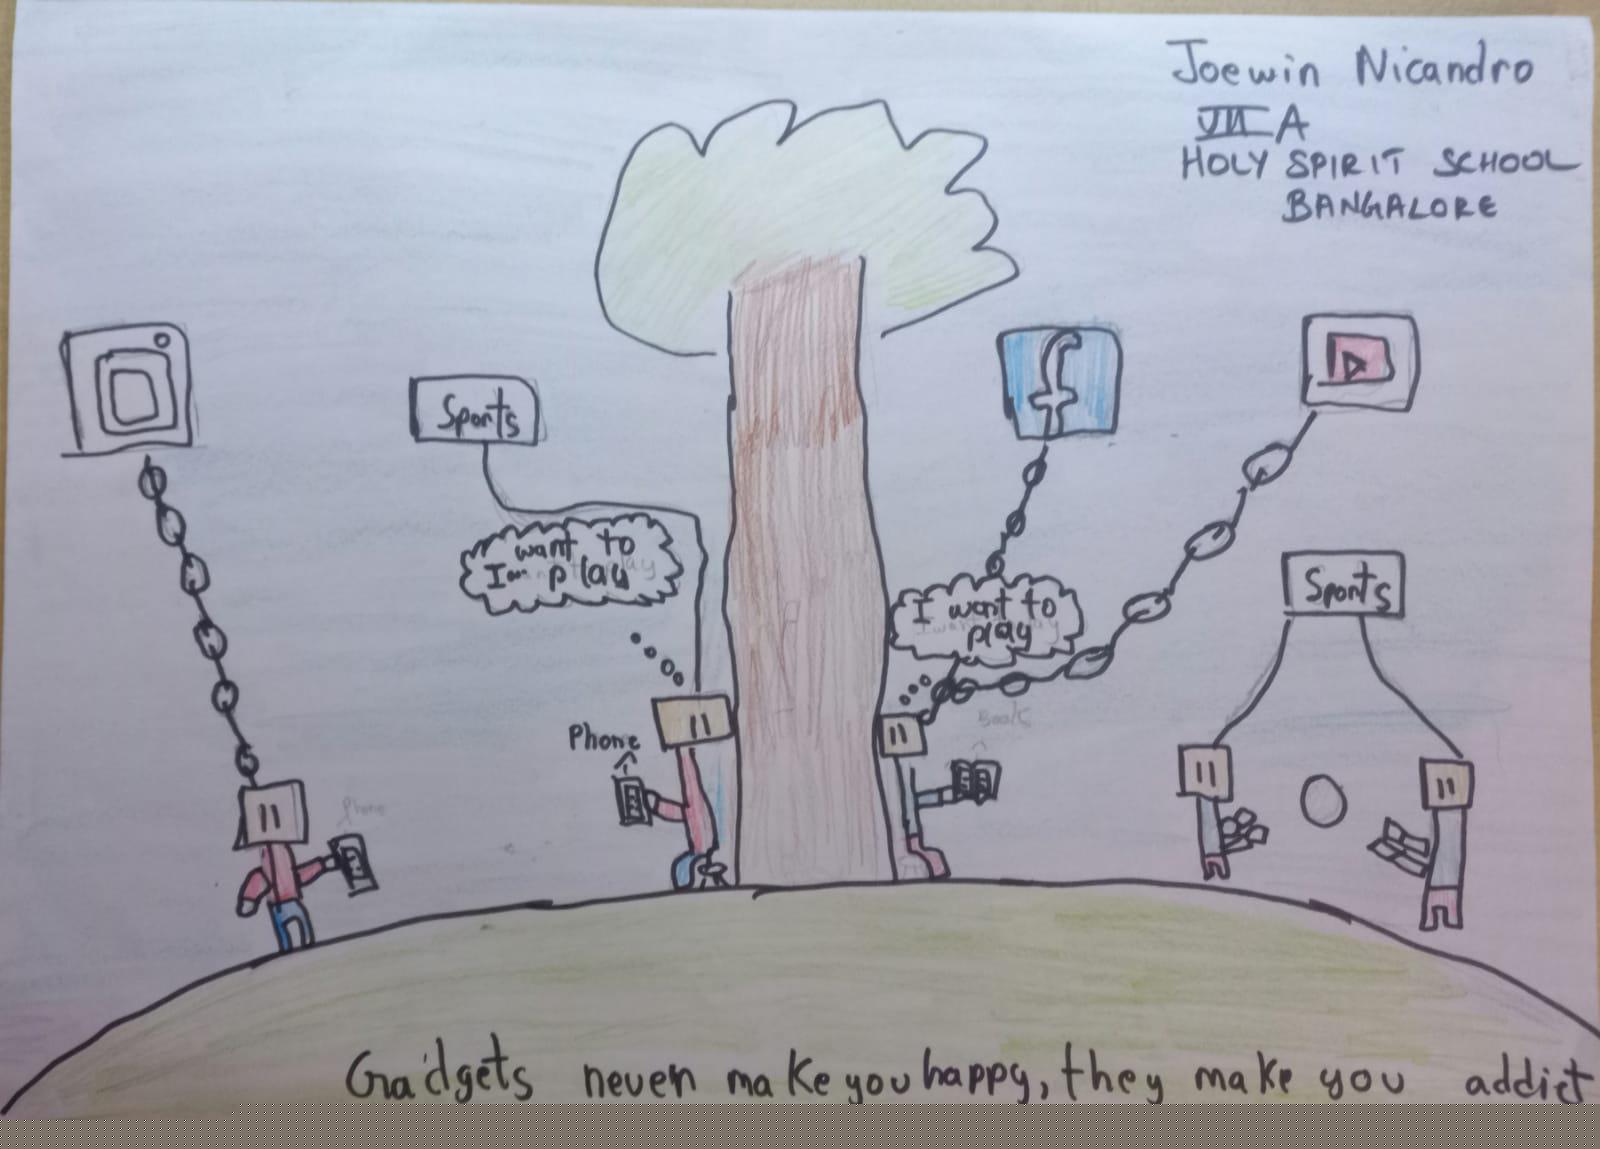 Joewin Nicandro
VII A
HOLY SPIRIT SCHOOL
BANGALORE
Sports
f
I want to
play
I want to
play
Sports
Book
Phone
Phone
Gadgets never make you happy, they make you addict